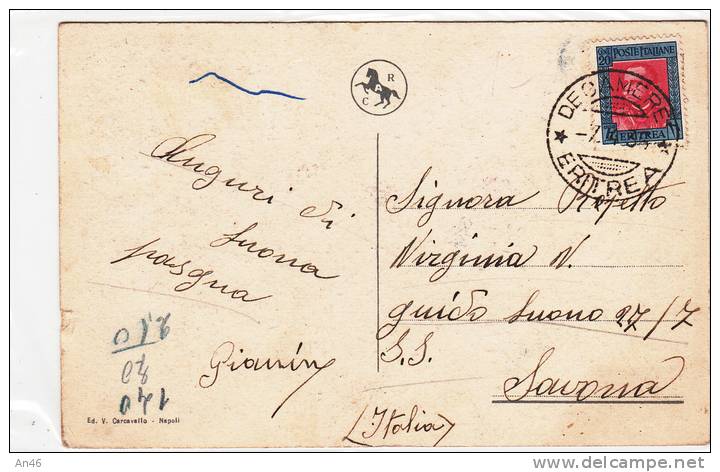 C R
POSTE ITALIANE
20
ERITREA
DECAMERE
ERITREA
Auguri di
buona
pasqua
Signora
Virginia V.
guido buono 27/7
S.S.
Savona
(Italia)
Ed. V. Carcavallo - Napoli
An46
www.delcampe.net